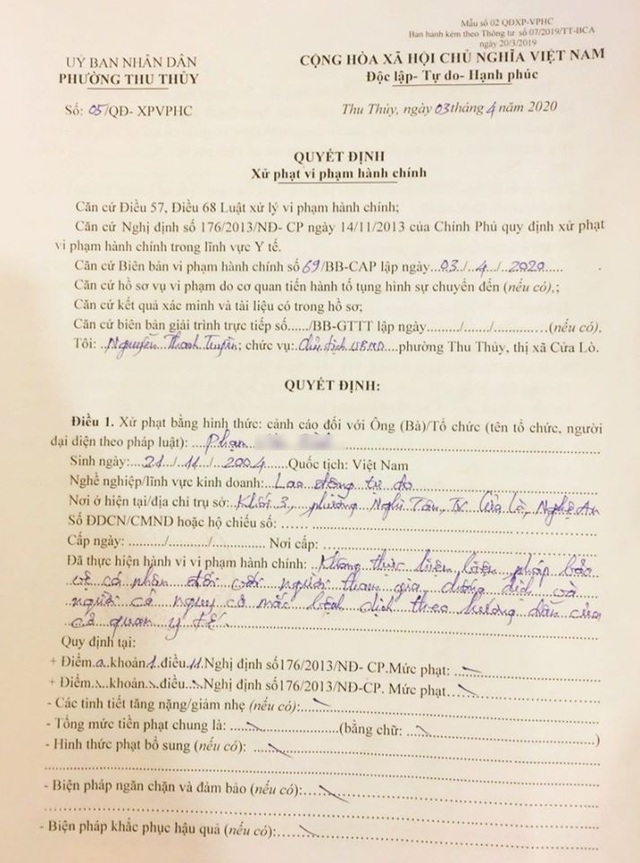 Mẫu số 02 QĐXP-VPHC
Ban hành kèm theo Thông tư số 07/2019/TT-BCA
ngày 20/3/2019
UỶ BAN NHÂN DÂN
PHƯỜNG THU THỦY
CỘNG HÒA XÃ HỘI CHỦ NGHĨA VIỆT NAM
Độc lập- Tự do- Hạnh phúc
Số: 05/QĐ- XPVPHC
Thu Thủy, ngày 03 tháng 4 năm 2020
QUYẾT ĐỊNH
Xử phạt vi phạm hành chính
Căn cứ Điều 57, Điều 68 Luật xử lý vi phạm hành chính;
Căn cứ Nghị định số 176/2013/NĐ- CP ngày 14/11/2013 của Chính Phủ quy định xử phạt
vi phạm hành chính trong lĩnh vực Y tế.
Căn cứ Biên bản vi phạm hành chính số 69/BB-CAP lập ngày...03../..4../...2020......
Căn cứ hồ sơ vụ vi phạm do cơ quan tiến hành tố tụng hình sự chuyển đến (nếu có).;
Căn cứ kết quả xác minh và tài liệu có trong hồ sơ;
Căn cứ biên bản giải trình trực tiếp số....../BB-GTTT lập ngày......./......./...............(nếu có).
Tôi: ..Nguyễn Thanh Truyền; chức vụ: Chủ tịch UBND.....phường Thu Thủy, thị xã Cửa Lò.
QUYẾT ĐỊNH:
Điều 1. Xử phạt bằng hình thức: cảnh cáo đối với Ông (Bà)/Tổ chức (tên tổ chức, người
đại diện theo pháp luật): .....Phạm
Sinh ngày:...21.../..11.../...2004.......Quốc tịch: Việt Nam
Nghề nghiệp/lĩnh vực kinh doanh:...Lao động tự do
Nơi ở hiện tại/địa chỉ trụ sở: Khối 3, phường Nghi Tân, TX Cửa Lò, Nghệ An
Số ĐDCN/CMND hoặc hộ chiếu số: .......
Cấp ngày:......./......./............... Nơi cấp:
Đã thực hiện hành vi vi phạm hành chính: Không thực hiện biện pháp bảo
vệ cá nhân đối với người tham gia chống dịch và
người có nguy cơ mắc bệnh dịch theo hướng dẫn của
cơ quan y tế.
Quy định tại:
+ Điểm.a.khoản.1.điều.11.Nghị định số176/2013/NĐ- CP.Mức phạt:
+ Điểm.....khoản.....điều.....Nghị định số176/2013/NĐ-CP. Mức phạt
- Các tình tiết tăng nặng/giảm nhẹ (nếu có):
- Tổng mức tiền phạt chung là: ..................(bằng chữ: ..................)
- Hình thức phạt bổ sung (nếu có):
- Biện pháp ngăn chặn và đảm bảo (nếu có):
- Biện pháp khắc phục hậu quả (nếu có):